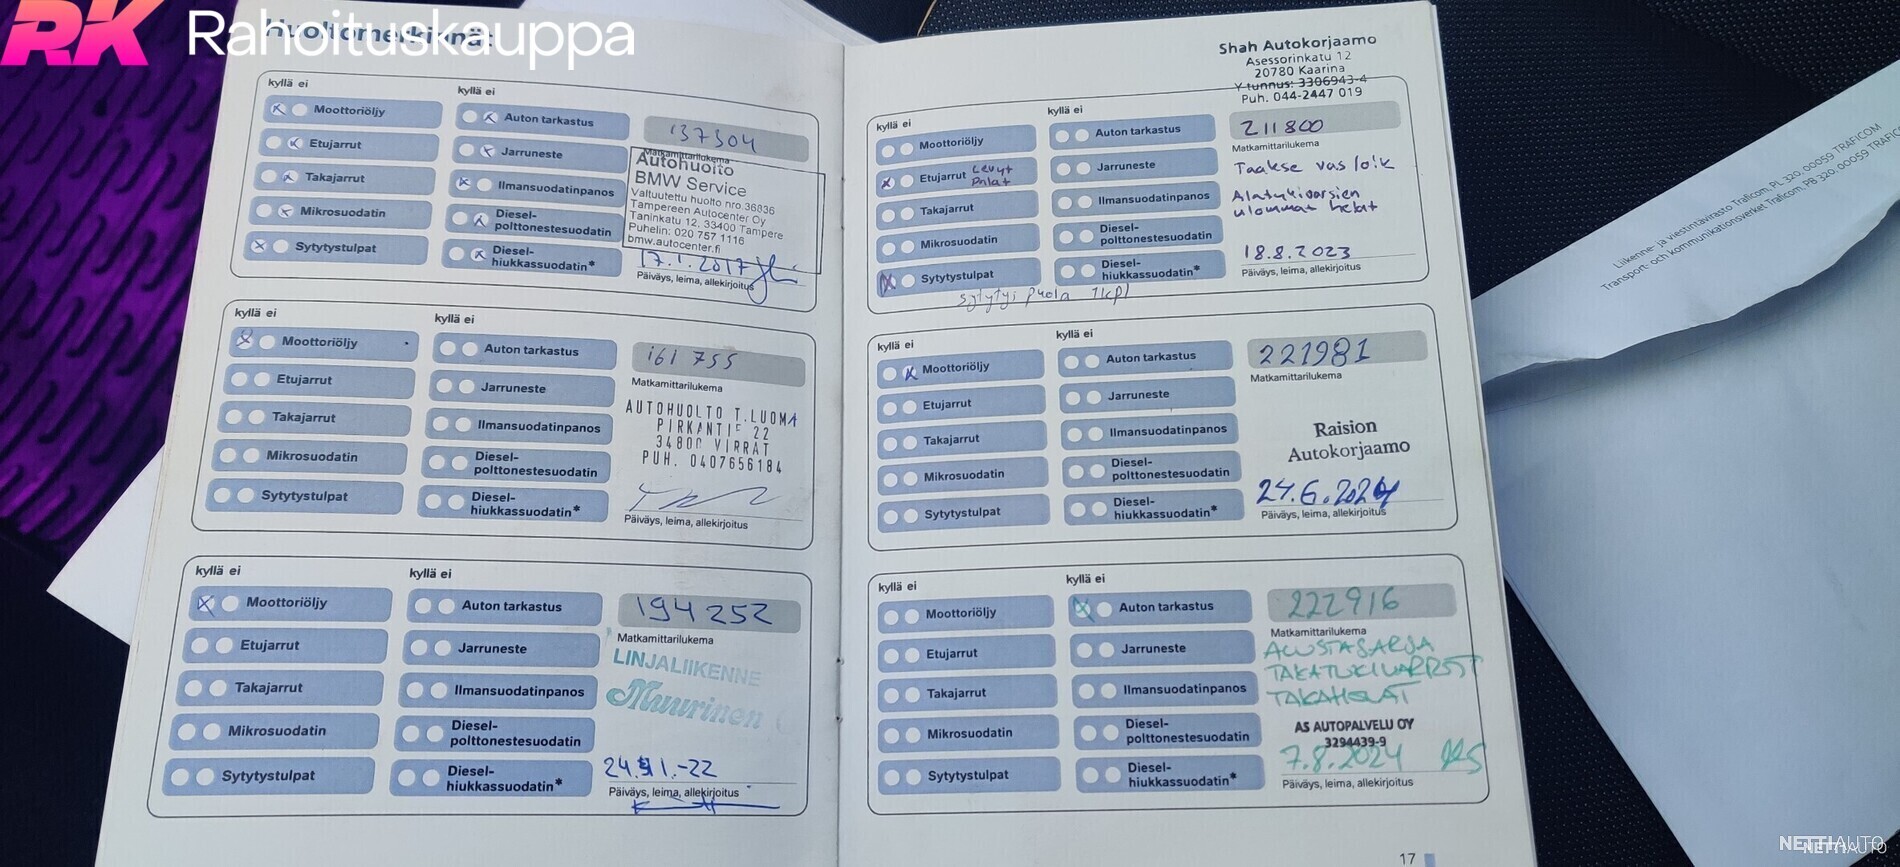 RK Rahoituskauppa
Huoltomerkinnät
kyllä ei
kyllä ei
Moottoriöljy
Etujarrut
Takajarrut
Mikrosuodatin
Sytytystulpat
Auton tarkastus
Jarruneste
Ilmansuodatinpanos
Diesel-
polttonestesuodatin
Diesel-
hiukkassuodatin*
137304
Matkamittarilukema
Autohuolto
BMW Service
Valtuutettu huolto nro.36836
Tampereen Autocenter Oy
Taninkatu 12, 33400 Tampere
Puhelin: 020 757 1116
bmw.autocenter.fi
17.1.2017
Päiväys, leima, allekirjoitus
kyllä ei
kyllä ei
Moottoriöljy
Etujarrut
Takajarrut
Mikrosuodatin
Sytytystulpat
Auton tarkastus
Jarruneste
Ilmansuodatinpanos
Diesel-
polttonestesuodatin
Diesel-
hiukkassuodatin*
161 755
Matkamittarilukema
AUTOHUOLTO T.LUOMA
PIRKANTIE 22
34800 VIRRAT
PUH. 0407656184
Päiväys, leima, allekirjoitus
kyllä ei
kyllä ei
Moottoriöljy
Etujarrut
Takajarrut
Mikrosuodatin
Sytytystulpat
Auton tarkastus
Jarruneste
Ilmansuodatinpanos
Diesel-
polttonestesuodatin
Diesel-
hiukkassuodatin*
194252
Matkamittarilukema
LINJALIIKENNE
Muurinen
Päiväys, leima, allekirjoitus
Shah Autokorjaamo
Asessorinkatu 12
20780 Kaarina
Y-tunnus: 3306943-4
Puh. 044-2447 019
kyllä ei
kyllä ei
Moottoriöljy
Etujarrut Levyt
Palat
Takajarrut
Mikrosuodatin
Sytytystulpat
Auton tarkastus
Jarruneste
Ilmansuodatinpanos
Diesel-
polttonestesuodatin
Diesel-
hiukkassuodatin*
211800
Matkamittarilukema
Taakse vas/oik
Alatukivarsien
ulommat helat
18.8.2023
Päiväys, leima, allekirjoitus
sytytys puola 1kpl
kyllä ei
kyllä ei
Moottoriöljy
Etujarrut
Takajarrut
Mikrosuodatin
Sytytystulpat
Auton tarkastus
Jarruneste
Ilmansuodatinpanos
Diesel-
polttonestesuodatin
Diesel-
hiukkassuodatin*
221981
Matkamittarilukema
Raision
Autokorjaamo
24.6.2024
Päiväys, leima, allekirjoitus
kyllä ei
kyllä ei
Moottoriöljy
Etujarrut
Takajarrut
Mikrosuodatin
Sytytystulpat
Auton tarkastus
Jarruneste
Ilmansuodatinpanos
Diesel-
polttonestesuodatin
Diesel-
hiukkassuodatin*
222916
Matkamittarilukema
ALUSTASARJA
TAKATUKIVARRET
TAKAHELAT
AS AUTOPALVELU OY
3294439-9
7.8.2024
Päiväys, leima, allekirjoitus
17
Liikenne- ja viestintävirasto Traficom, PL 320, 00059 TRAFICOM
Transport- och kommunikationsverket Traficom, PB 320, 00059 TRAFICOM
NETTIAUTO
NETTIAUTO